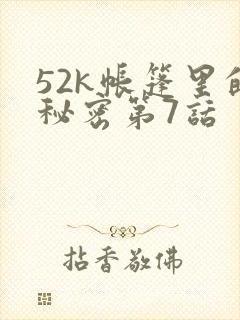 52k帳篷里的
秘密第7話
拈香敬佛